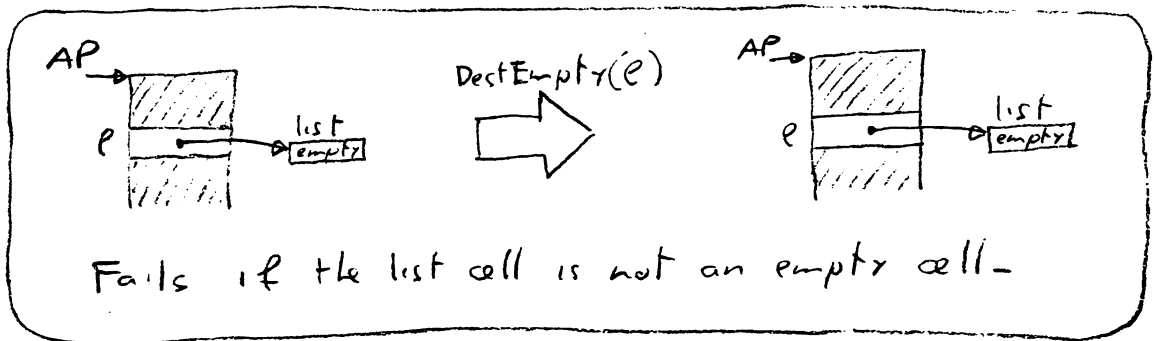 AP
ℓ
list
empty
DestEmpty(ℓ)
AP
ℓ
list
empty
Fails if the list cell is not an empty cell-